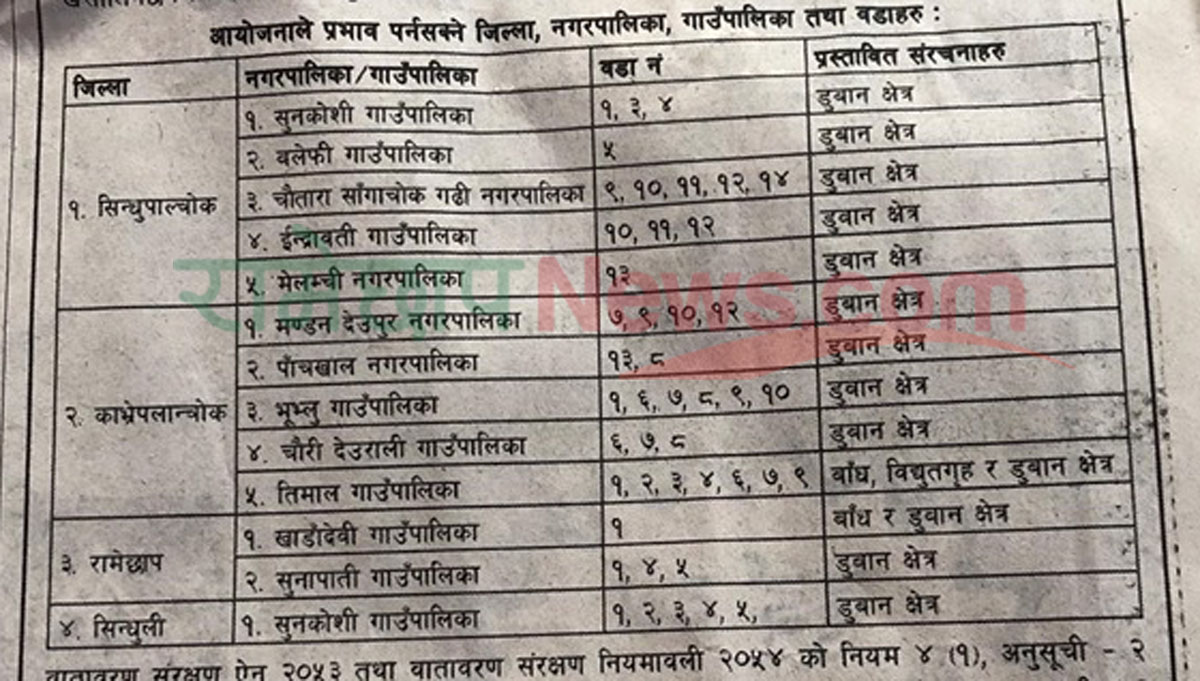 आयोजनाले प्रभाव पर्नसक्ने जिल्ला, नगरपालिका, गाउँपालिका तथा वडाहरु :
जिल्ला नगरपालिका/गाउँपालिका वडा नं प्रस्तावित संरचनाहरु
१. सिन्धुपाल्चोक १. सुनकोशी गाउँपालिका १, ३, ४ डुबान क्षेत्र
२. बलेफी गाउँपालिका ५ डुबान क्षेत्र
३. चौतारा साँगाचोक गढी नगरपालिका ९, १०, ११, १२, १४ डुबान क्षेत्र
४. ईन्द्रावती गाउँपालिका १०, ११, १२ डुबान क्षेत्र
५. मेलम्ची नगरपालिका १३ डुबान क्षेत्र
२. काभ्रेपलान्चोक १. मण्डन देउपुर नगरपालिका ७, ९, १०, १२ डुबान क्षेत्र
२. पाँचखाल नगरपालिका १३, ८ डुबान क्षेत्र
३. भूम्लु गाउँपालिका १, ६, ७, ८, ९, १० डुबान क्षेत्र
४. चौरी देउराली गाउँपालिका ६, ७, ८ डुबान क्षेत्र
५. तिमाल गाउँपालिका १, २, ३, ४, ६, ७, ९ बाँध, विद्युतगृह र डुबान क्षेत्र
३. रामेछाप १. खाडाँदेवी गाउँपालिका १ बाँध र डुबान क्षेत्र
२. सुनापाती गाउँपालिका १, ४, ५ डुबान क्षेत्र
४. सिन्धुली १. सुनकोशी गाउँपालिका १, २, ३, ४, ५, डुबान क्षेत्र
वातावरण संरक्षण ऐन २०५३ तथा वातावरण संरक्षण नियमावली २०५४ को नियम ४ (१), अनुसूची - २
रामेछाप News.com